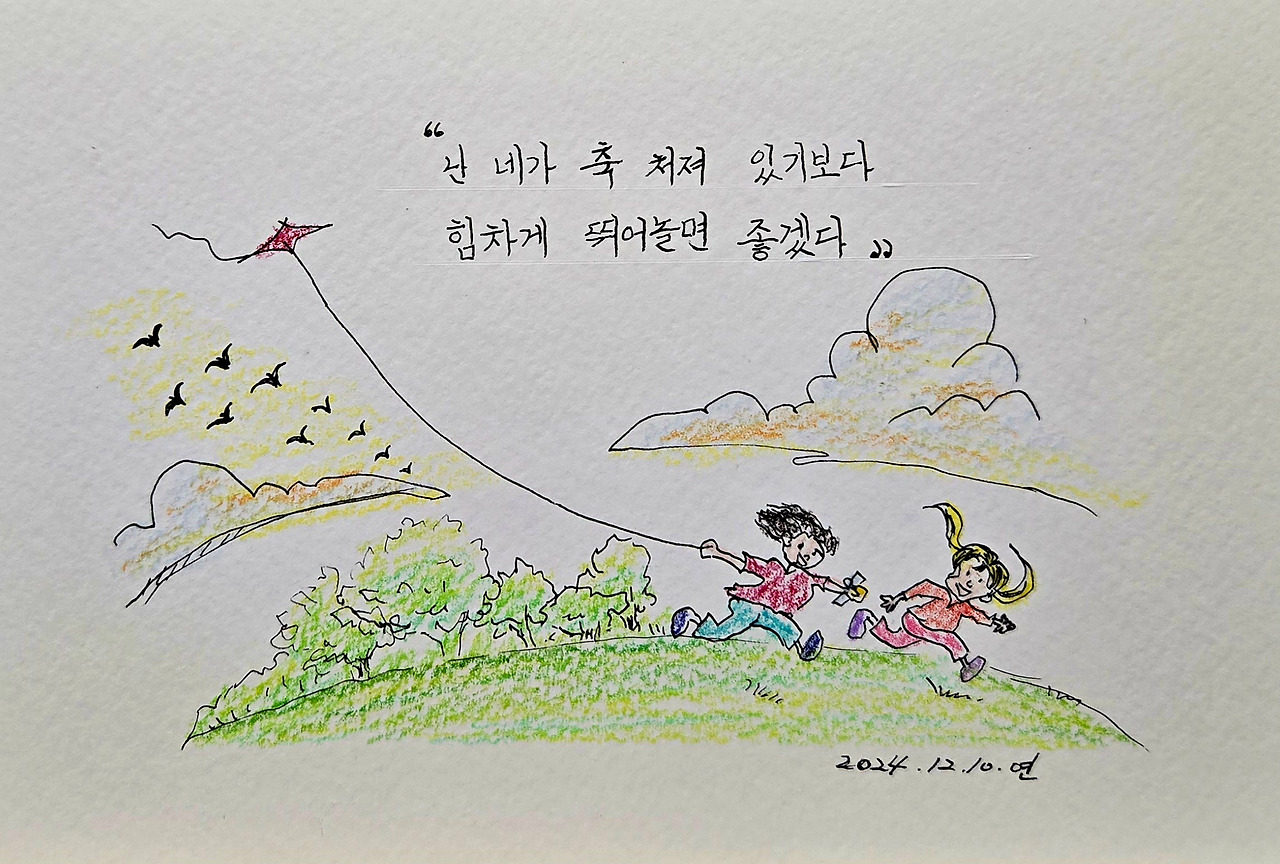 “난 네가 축 처져 있기보다
힘차게 뛰어놀면 좋겠다”
2024.12.10.연